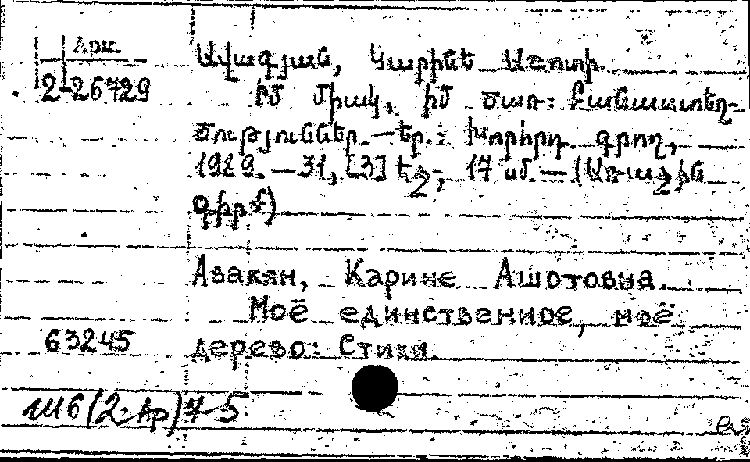 Арм.
2-26729
Ավագյան, Կարինե Աշոտի.
Իմ միակ, իմ ծառ: Բանաստեղ-
ծություններ. — Եր.: Խորհրդ. գրող,
1989. — 31, [3] էջ; 17 սմ. — (Առաջին
գիրք)
Авакян, Карине Ашотовна.
Моё единственное, моё
63245
дерево: Стихи.
Ш6(2-Ар)7-5